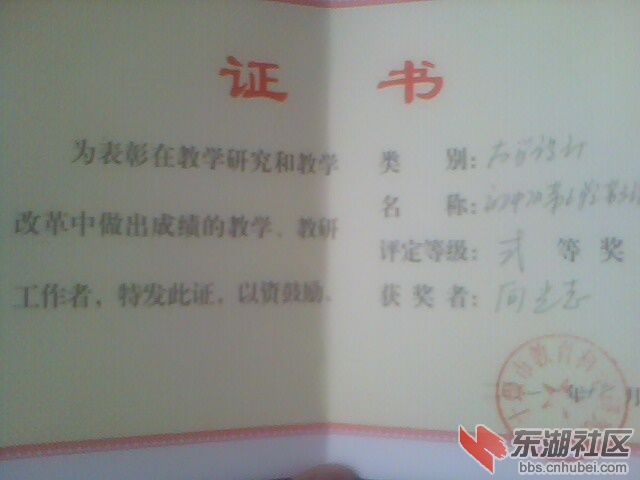 证 书
为表彰在教学研究和教学
改革中做出成绩的教学、教研
工作者，特发此证，以资鼓励。
类 别：
名 称：
评定等级：弍 等 奖
获 奖 者：
十堰市教育
年 月
东湖社区
bbs.cnhubei.com